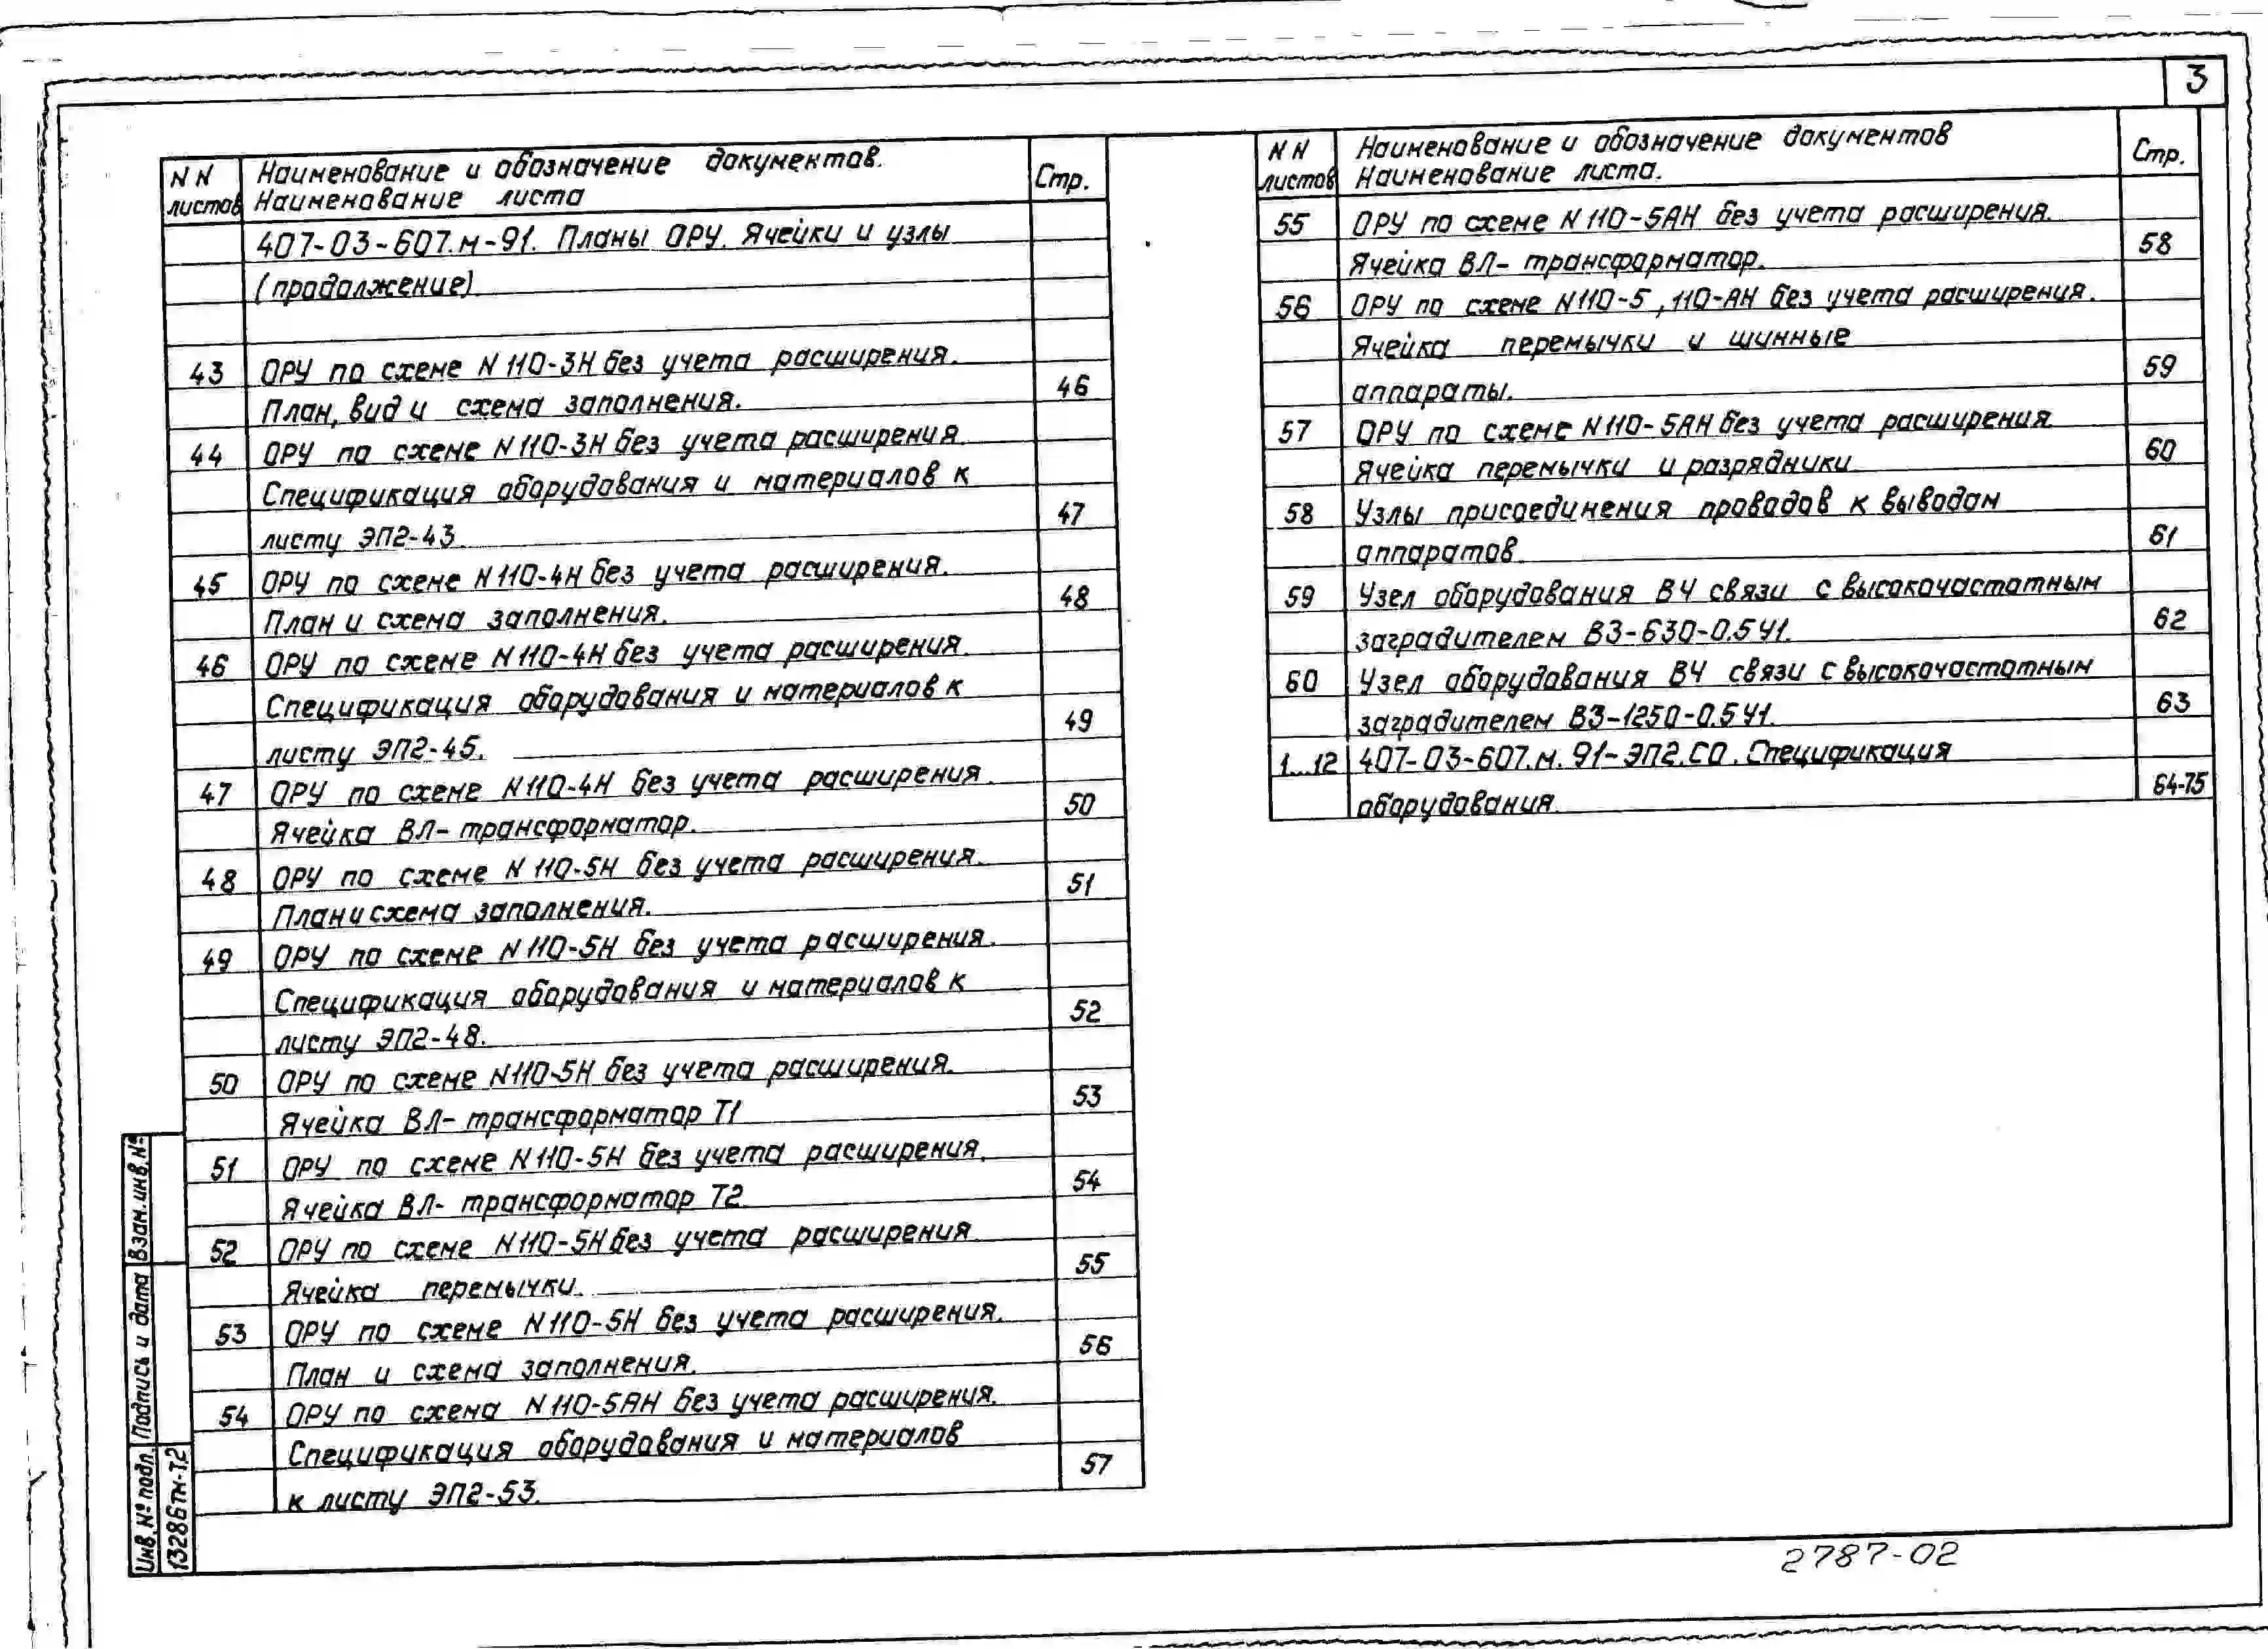 3
NN листов
Наименование и обозначение документов.
Наименование листа
Стр.
407-03-607.м-91. Планы ОРУ. Ячейки и узлы
(продолжение)
43 ОРУ по схеме N 110-3Н без учета расширения.
План, вид и схема заполнения. 46
44 ОРУ по схеме N 110-3Н без учета расширения.
Спецификация оборудования и материалов к
листу ЭП2-43. 47
45 ОРУ по схеме N 110-4Н без учета расширения.
План и схема заполнения. 48
46 ОРУ по схеме N 110-4Н без учета расширения.
Спецификация оборудования и материалов к
листу ЭП2-45. 49
47 ОРУ по схеме N 110-4Н без учета расширения.
Ячейка ВЛ-трансформатор. 50
48 ОРУ по схеме N 110-5Н без учета расширения.
План и схема заполнения. 51
49 ОРУ по схеме N 110-5Н без учета расширения.
Спецификация оборудования и материалов к
листу ЭП2-48. 52
50 ОРУ по схеме N110-5Н без учета расширения.
Ячейка ВЛ-трансформатор Т1 53
51 ОРУ по схеме N 110-5Н без учета расширения.
Ячейка ВЛ-трансформатор Т2. 54
52 ОРУ по схеме N110-5Н без учета расширения
Ячейка перемычки. 55
53 ОРУ по схеме N110-5Н без учета расширения.
План и схема заполнения. 56
54 ОРУ по схема N 110-5АН без учета расширения.
Спецификация оборудования и материалов
к листу ЭП2-53. 57
NN листов
Наименование и обозначение документов
Наименование листа.
Стр.
55 ОРУ по схеме N 110-5АН без учета расширения.
Ячейка ВЛ-трансформатор. 58
56 ОРУ по схеме N110-5, 110-АН без учета расширения.
Ячейка перемычки и шинные
аппараты. 59
57 ОРУ по схеме N110-5АН без учета расширения.
Ячейка перемычки и разрядники 60
58 Узлы присоединения проводов к выводам
аппаратов. 61
59 Узел оборудования ВЧ связи с высокочастотным
заградителем ВЗ-630-0.5У1. 62
60 Узел оборудования ВЧ связи с высокочастотным
заградителем ВЗ-1250-0.5У1. 63
1...12 407-03-607.м.91-ЭП2.СО. Спецификация
оборудования. 64-75
Взам.инв.№
Подпись и дата
Инв.№ подл.
13286тм-т2
2787-02